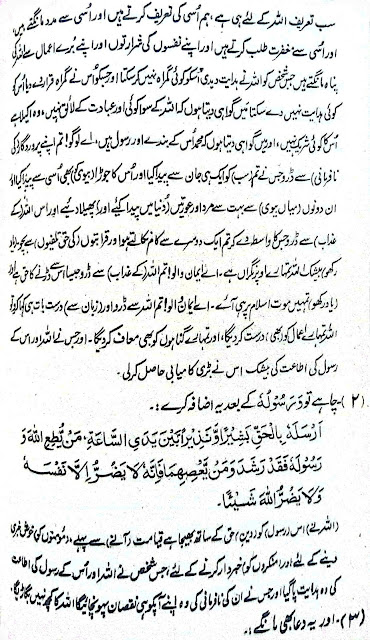 سب تعریف اللہ کے لئے ہی ہے، ہم اُسی کی تعریف کرتے ہیں اور اُسی سے مدد مانگتے ہیں،
اور اُسی سے مغفرت طلب کرتے ہیں اور اپنے نفسوں کی شرارتوں اور اپنے بُرے اعمال سے اللہ کی
پناہ مانگتے ہیں جس شخص کو اللہ نے ہدایت دیدی اُسکو کوئی گمراہ نہیں کرسکتا اور جسکو اُس نے گمراہ قرار دے دیا اُسکو
کوئی ہدایت نہیں دے سکتا میں گواہی دیتا ہوں کہ اللہ کے سوا کوئی اور عبادت کے لائق نہیں، وہ اکیلا ہے
اُس کا کوئی شریک نہیں، اور میں گواہی دیتا ہوں کہ محمد اُس کے بندے اور رسول ہیں، اے لوگو! تم اپنے پروردگار (کی
نافرمانی) سے ڈرو جس نے تم (سب) کو ایک ہی جان سے پیدا کیا اور اُس کا جوڑا (بیوی) بھی اُسی سے پیدا کیا اور
ان دونوں (میاں بیوی) سے بہت سے مرد اور عورتیں (دُنیا میں پیدا کیے اور) پھیلا دیے اور اُس اللہ (کے
غذاب) سے ڈرو جس کا واسطہ دے کر تم ایک دوسرے سے کام نکالتے ہو اور قرابتوں (کی حق تلفیوں) سے بچو (یاد
رکھو) بیشک اللہ تمہارے اوپر نگراں ہے۔ اے ایمان والو! تم اللہ (کے عذاب) سے ڈرو جیسا اُس سے ڈرنے کا حق ہے اور
(یاد رکھو) تمہیں موت اسلام پر ہی آئے۔ اے ایمان والو! تم اللہ سے ڈرو اور (زبان سے) درست بات ہی کہا کرو تو
اللہ تمہارے اعمال کو (بھی) درست کر دیگا، اور تمہارے گناہوں کو بھی معاف کر دیگا۔ اور جس نے اللہ اور اس کے
رسول کی اطاعت کی بیشک اس نے بڑی کامیابی حاصل کر لی۔
(۲)۔ چاہے تو وَرَسُوْلُهٗ کے بعد یہ اضافہ کرے :۔
اَرْسَلَهٗ بِالْحَقِّ بَشِيْرًا وَّنَذِيْرًا بَيْنَ يَدَيِ السَّاعَةِ، مَنْ يُّطِعِ اللهَ وَ
رَسُوْلَهٗ فَقَدْ رَشَدَ وَمَنْ يَّعْصِهِمَا فَاِنَّهٗ لَا يَضُرُّ اِلَّا نَفْسَهٗ
وَلَا يَضُرُّ اللهَ شَيْئًا۔
(اللہ نے) اس (رسول) کو (دین) حق کے ساتھ بھیجا ہے قیامت (آنے) سے پہلے، (مومنوں کو) خوش خبری
دینے کے لئے اور (منکروں کو) خبردار کرنے کے لئے، جس شخص نے اللہ اور اُس کے رسول کی اطاعت
کی وہ ہدایت پا گیا اور جس نے ان کی نافرمانی کی وہ اپنے آپکو ہی نقصان پہونچائیگا، اللہ کا کچھ نہیں بگاڑیگا،
(۳)۔ اور یہ دعا بھی مانگے :۔